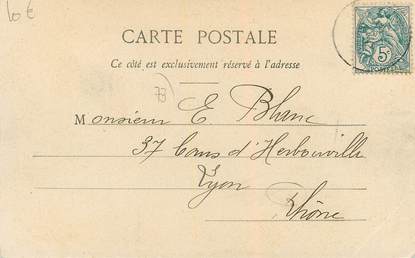 10 €
CARTE POSTALE
Ce côté est exclusivement réservé à l'adresse
73
Monsieur E Blanc
37 Cours d'Herbouville
Lyon
Rhône
5c